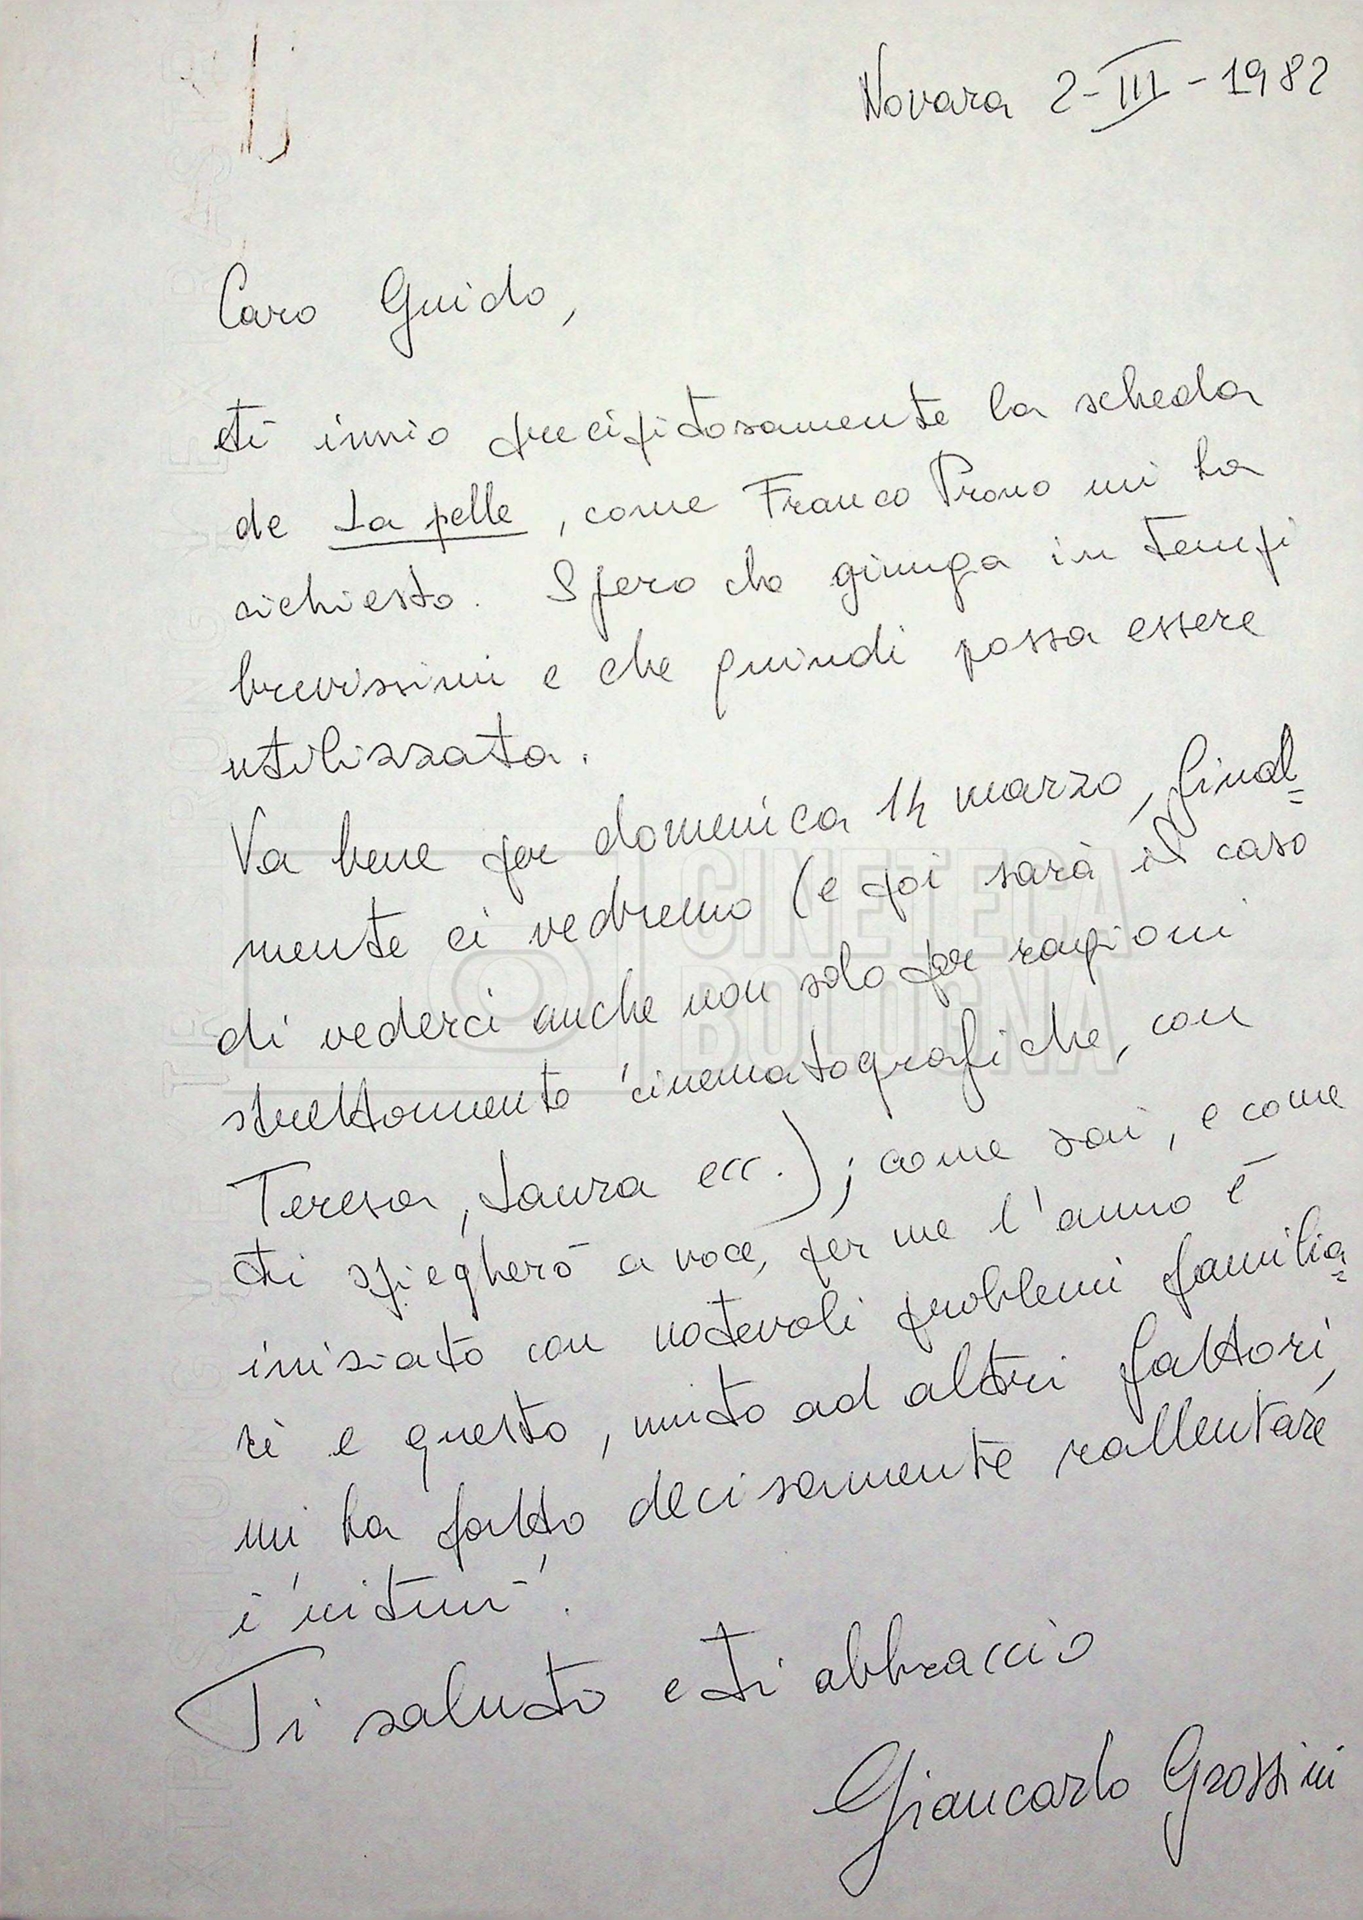 Novara 2-III-1982
Caro Guido,
ti invio precipitosamente la scheda
de La pelle, come Franco Prono mi ha
richiesto. Spero che giunga in tempi
brevissimi e che quindi possa essere
utilizzata.
Va bene per domenica 14 marzo, final=
mente ci vedremo (e poi sarà il caso
di vederci anche non solo per ragioni
strettamente cinematografiche, con
Teresa, Laura ecc.); come sai, e come
ti spiegherò a voce, per me l'anno è
iniziato con notevoli problemi familia=
ri e questo, unito ad altri fattori,
mi ha fatto decisamente rallentare
i 'ritmi'.
Ti saluto e ti abbraccio
Giancarlo Grossini
CINETECA
BOLOGNA